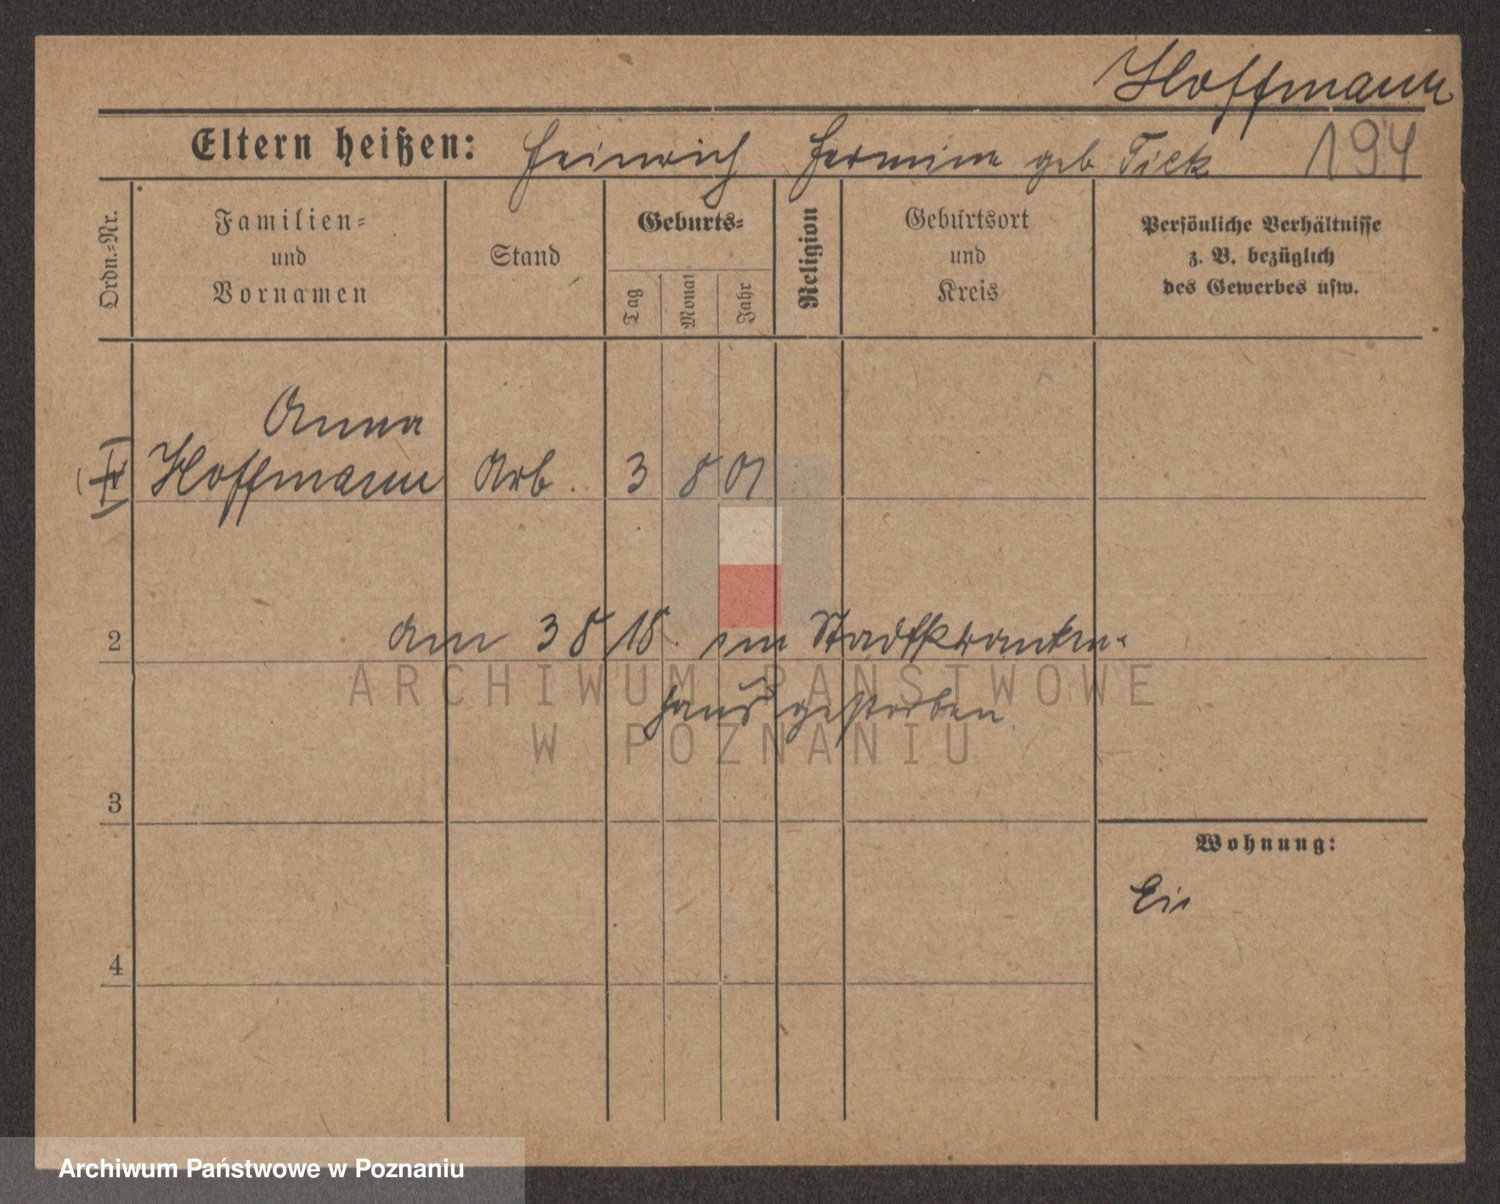 Hoffmann
Eltern heißen: Heinrich Hermine geb Tieck 194
Ordn.-Nr.
Familien-
und
Vornamen
Stand
Geburts-
Tag
Monat
Jahr
Religion
Geburtsort
und
Kreis
Persönliche Verhältnisse
z. B. bezüglich
des Gewerbes usw.
Anna
Hoffmann Arb. 3 8 01
2 am 3 8 18. im Stadtkranken-
haus gestorben
3
Wohnung:
4
ARCHIWUM PAŃSTWOWE
W POZNANIU
Archiwum Państwowe w Poznaniu